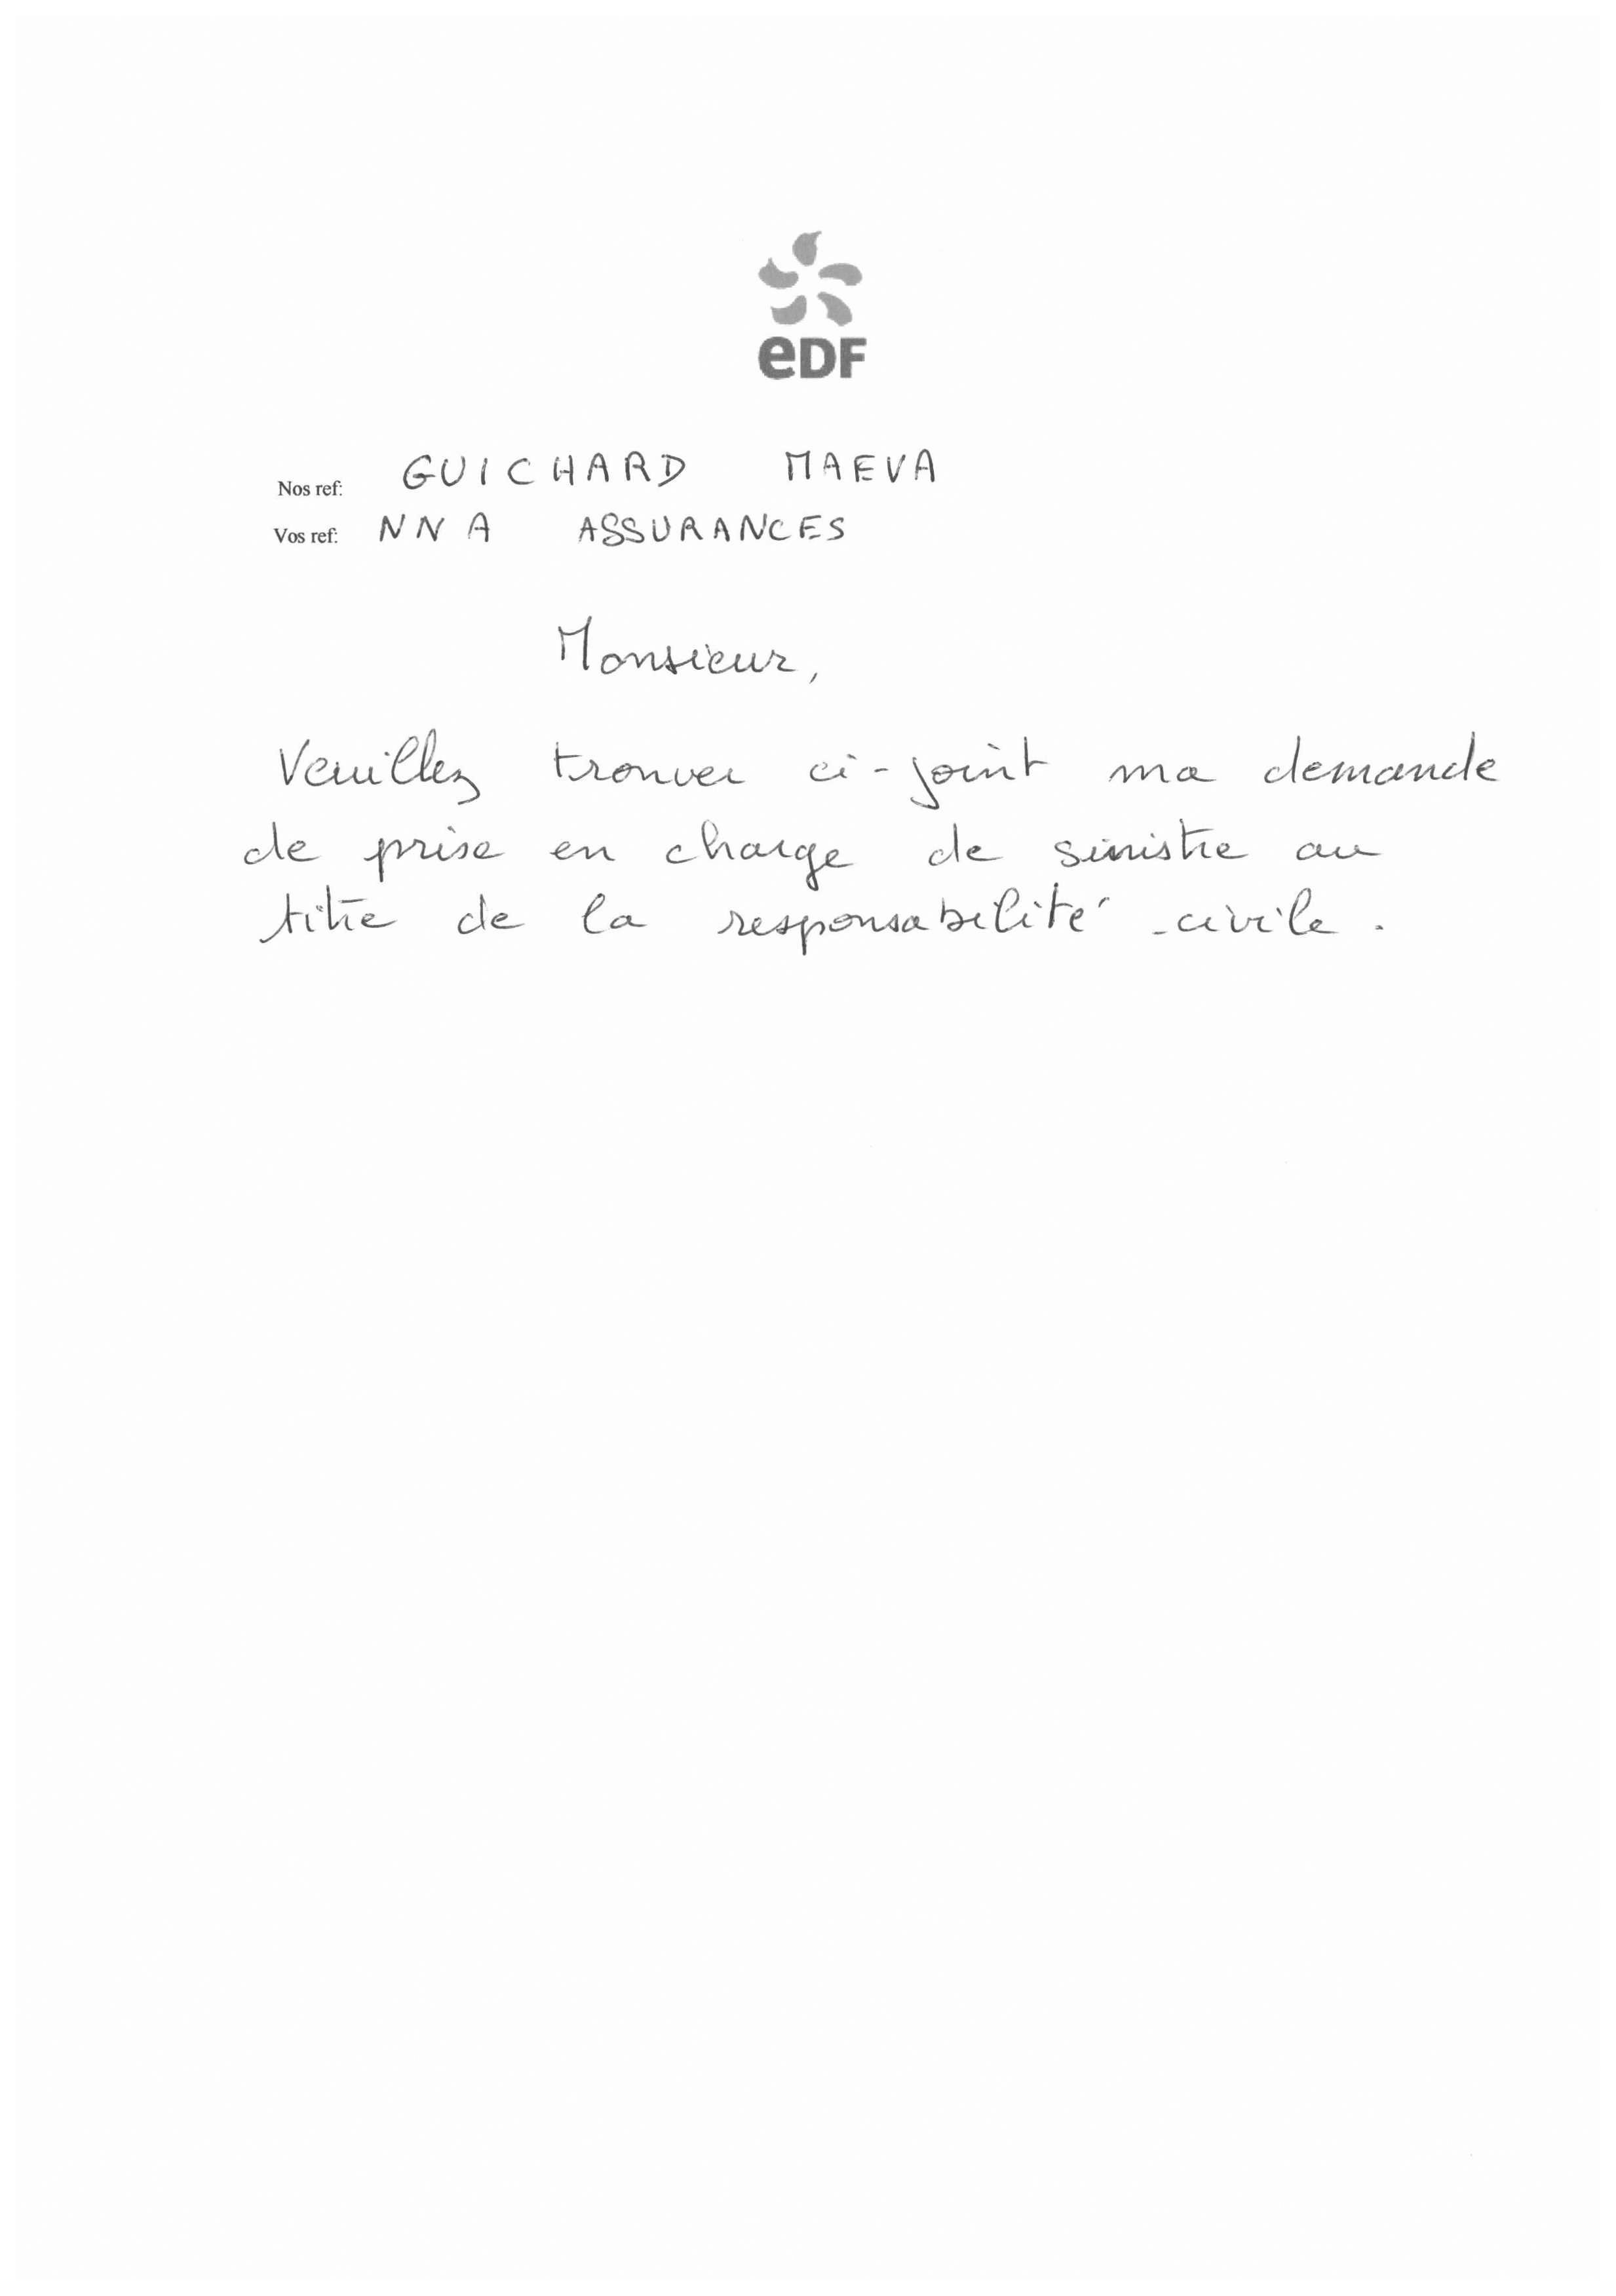 eDF
Nos ref: GUICHARD MAEVA
Vos ref: NNA ASSURANCES
Monsieur,
Veuillez trouver ci-joint ma demande
de prise en charge de sinistre au
titre de la responsabilité civile.